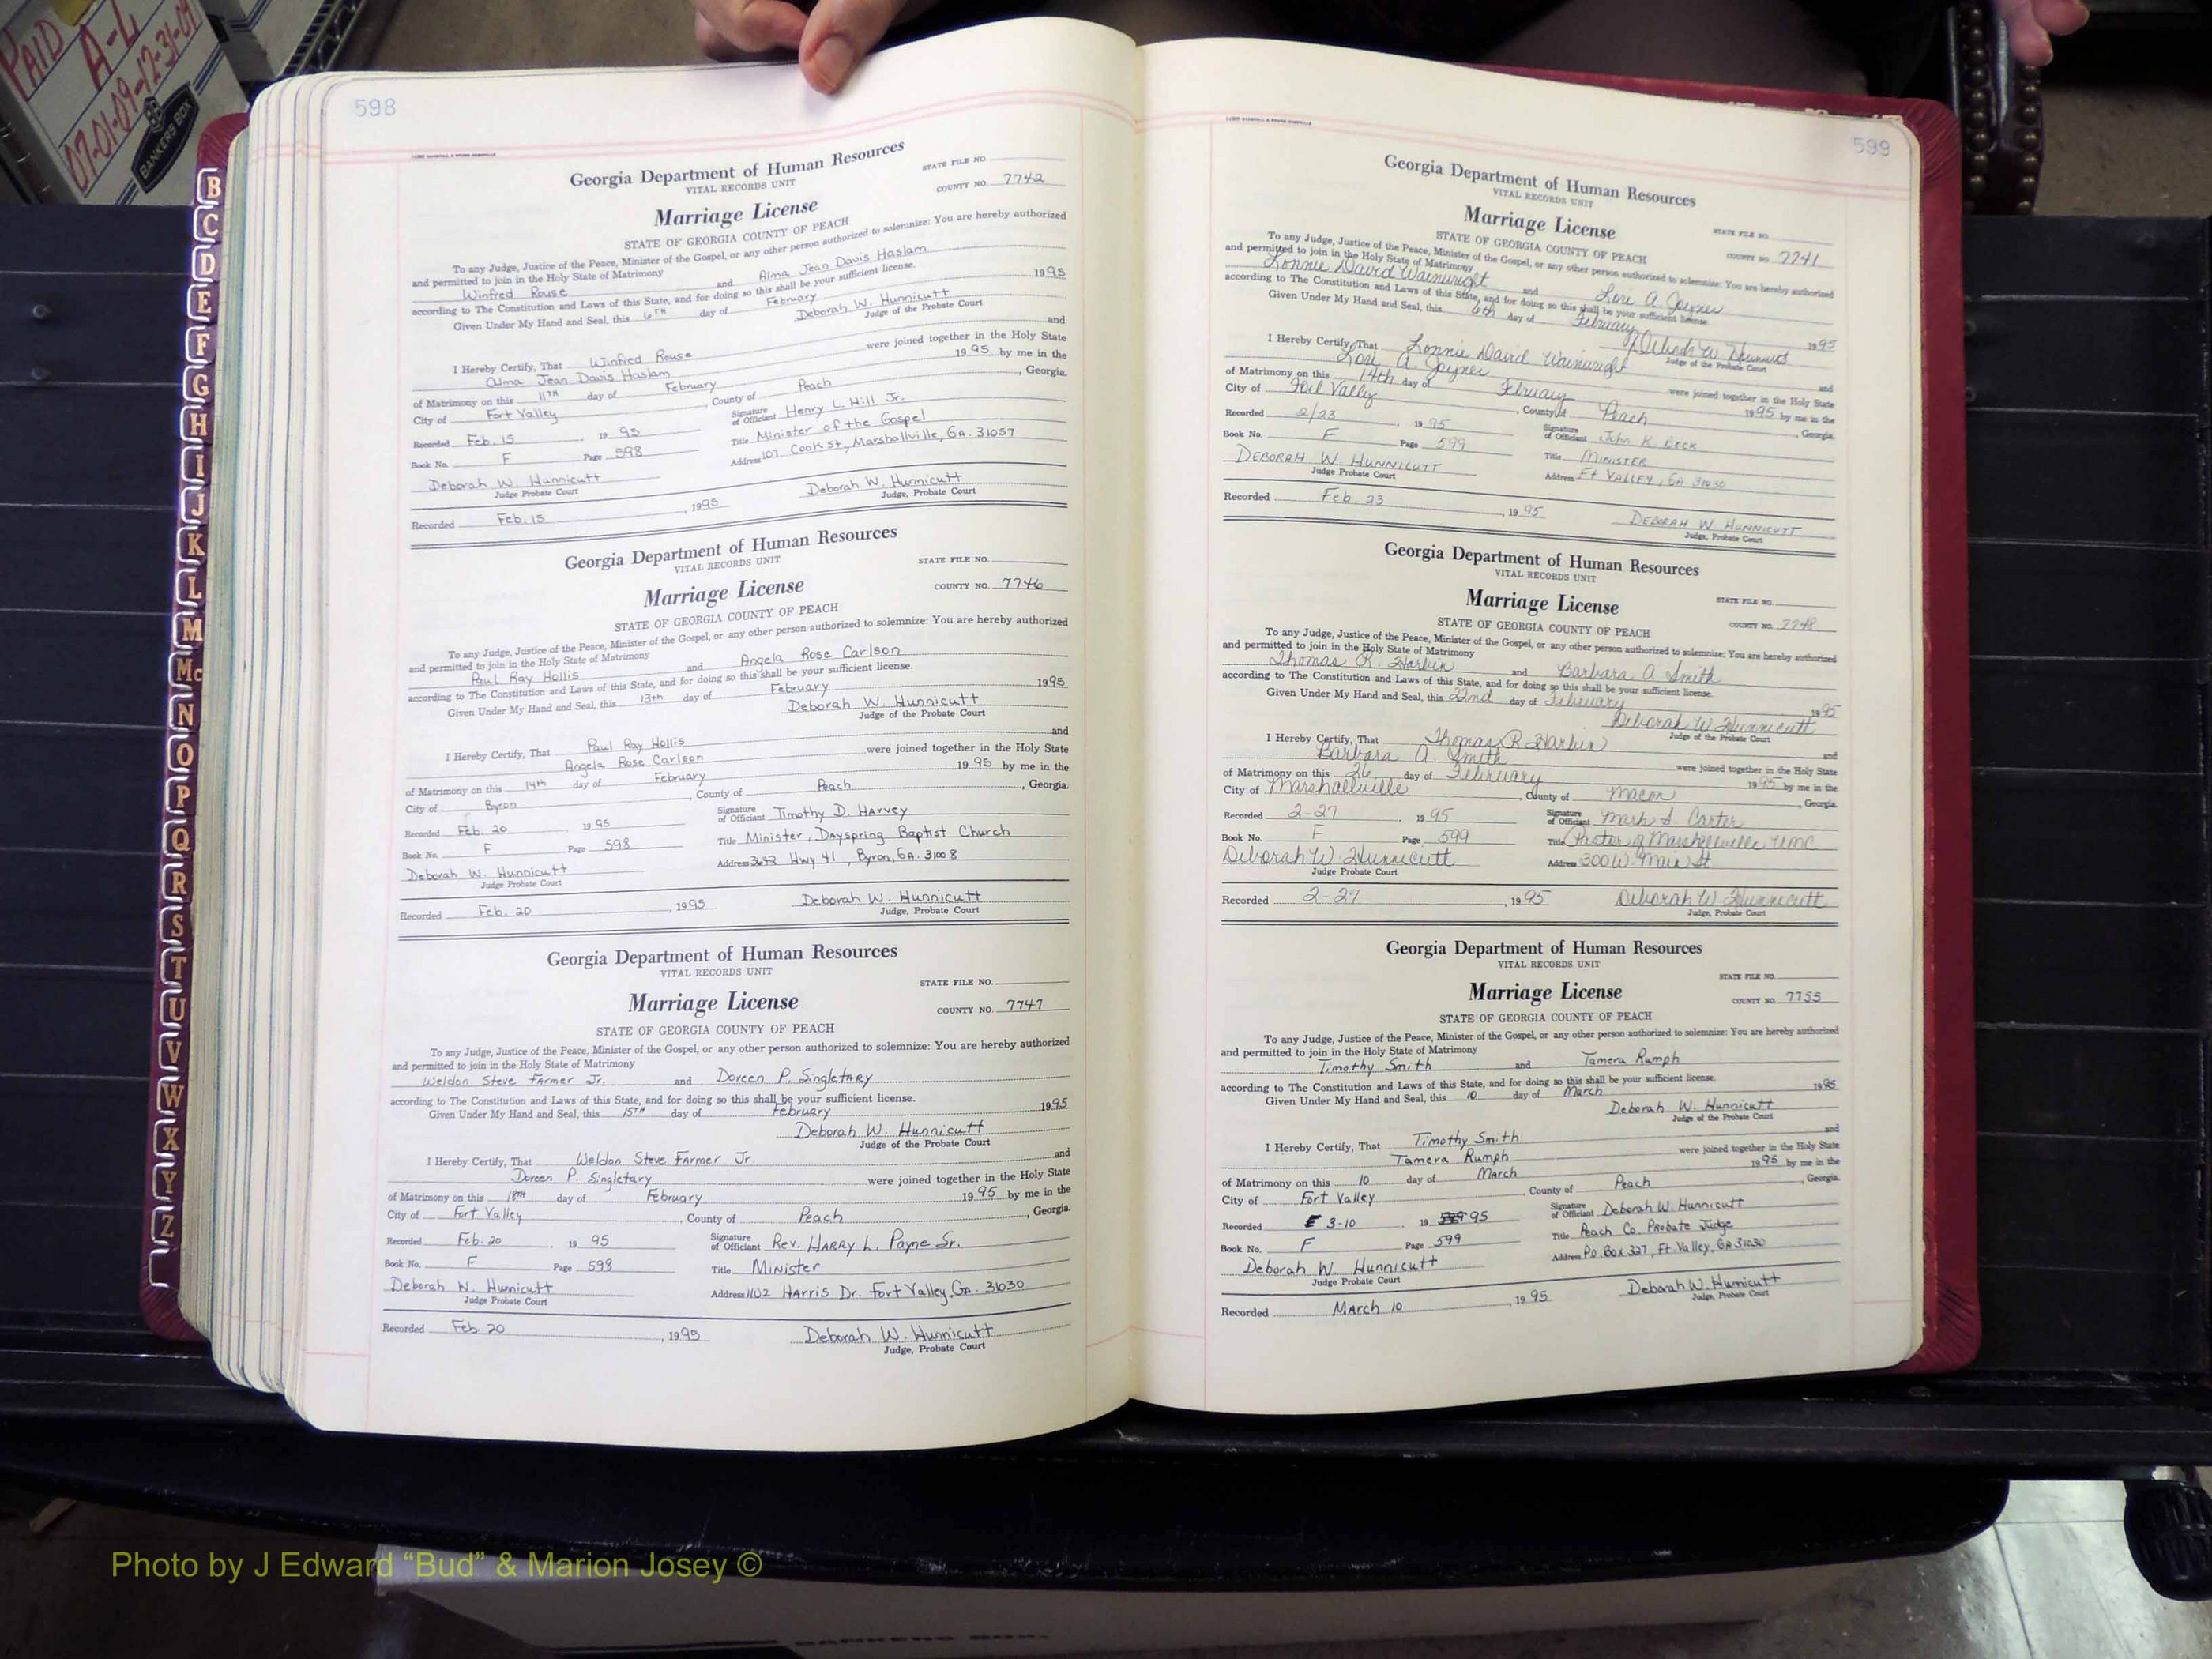 PAID
A-L
07-01-09-12-31-09
BANKERS BOX
B
C
D
E
F
G
H
I
J
K
L
M
Mc
N
O
P
Q
R
S
T
U
V
W
X
Y
Z
598
Georgia Department of Human Resources
VITAL RECORDS UNIT
STATE FILE NO.
COUNTY NO. 7742
Marriage License
STATE OF GEORGIA COUNTY OF PEACH
To any Judge, Justice of the Peace, Minister of the Gospel, or any other person authorized to solemnize: You are hereby authorized
and permitted to join in the Holy State of Matrimony
Winfred Rouse and Alma Jean Davis Haslam
according to The Constitution and Laws of this State, and for doing so this shall be your sufficient license.
Given Under My Hand and Seal, this 6TH day of February 1995
Deborah W. Hunnicutt
Judge of the Probate Court
I Hereby Certify, That Winfred Rouse and
Alma Jean Davis Haslam were joined together in the Holy State
of Matrimony on this 11TH day of February 1995 by me in the
City of Fort Valley, County of Peach, Georgia.
Recorded Feb. 15, 1995 Signature of Officiant Henry L. Hill Jr.
Book No. F Page 598 Title Minister of the Gospel
Address 107 Cook St, Marshallville, GA. 31057
Deborah W. Hunnicutt
Judge Probate Court
Recorded Feb. 15, 1995 Deborah W. Hunnicutt
Judge, Probate Court
Georgia Department of Human Resources
VITAL RECORDS UNIT
STATE FILE NO.
COUNTY NO. 7746
Marriage License
STATE OF GEORGIA COUNTY OF PEACH
To any Judge, Justice of the Peace, Minister of the Gospel, or any other person authorized to solemnize: You are hereby authorized
and permitted to join in the Holy State of Matrimony
Paul Ray Hollis and Angela Rose Carlson
according to The Constitution and Laws of this State, and for doing so this shall be your sufficient license.
Given Under My Hand and Seal, this 13th day of February 1995
Deborah W. Hunnicutt
Judge of the Probate Court
I Hereby Certify, That Paul Ray Hollis and
Angela Rose Carlson were joined together in the Holy State
of Matrimony on this 14th day of February 1995 by me in the
City of Byron, County of Peach, Georgia.
Recorded Feb. 20, 1995 Signature of Officiant Timothy D. Harvey
Book No. F Page 598 Title Minister, Dayspring Baptist Church
Address 3642 Hwy 41, Byron, GA. 31008
Deborah W. Hunnicutt
Judge Probate Court
Recorded Feb. 20, 1995 Deborah W. Hunnicutt
Judge, Probate Court
Georgia Department of Human Resources
VITAL RECORDS UNIT
STATE FILE NO.
COUNTY NO. 7747
Marriage License
STATE OF GEORGIA COUNTY OF PEACH
To any Judge, Justice of the Peace, Minister of the Gospel, or any other person authorized to solemnize: You are hereby authorized
and permitted to join in the Holy State of Matrimony
Weldon Steve Farmer Jr. and Doreen P. Singletary
according to The Constitution and Laws of this State, and for doing so this shall be your sufficient license.
Given Under My Hand and Seal, this 15TH day of February 1995
Deborah W. Hunnicutt
Judge of the Probate Court
I Hereby Certify, That Weldon Steve Farmer Jr. and
Doreen P. Singletary were joined together in the Holy State
of Matrimony on this 18TH day of February 1995 by me in the
City of Fort Valley, County of Peach, Georgia.
Recorded Feb. 20, 1995 Signature of Officiant Rev. Harry L. Payne Sr.
Book No. F Page 598 Title Minister
Address 1102 Harris Dr. Fort Valley, GA. 31030
Deborah W. Hunnicutt
Judge Probate Court
Recorded Feb. 20, 1995 Deborah W. Hunnicutt
Judge, Probate Court
599
Georgia Department of Human Resources
VITAL RECORDS UNIT
STATE FILE NO.
COUNTY NO. 7741
Marriage License
STATE OF GEORGIA COUNTY OF PEACH
To any Judge, Justice of the Peace, Minister of the Gospel, or any other person authorized to solemnize: You are hereby authorized
and permitted to join in the Holy State of Matrimony
Lonnie David Wainwright and Lori A. Joyner
according to The Constitution and Laws of this State, and for doing so this shall be your sufficient license.
Given Under My Hand and Seal, this 6th day of February 1995
Deborah W. Hunnicutt
Judge of the Probate Court
I Hereby Certify, That Lonnie David Wainwright and
Lori A. Joyner were joined together in the Holy State
of Matrimony on this 14th day of February 1995 by me in the
City of Fort Valley, County of Peach, Georgia.
Recorded 2/23, 1995 Signature of Officiant John K. Beck
Book No. F Page 599 Title Minister
Address Ft Valley, GA 31030
Deborah W Hunnicutt
Judge Probate Court
Recorded Feb. 23, 1995 Deborah W Hunnicutt
Judge, Probate Court
Georgia Department of Human Resources
VITAL RECORDS UNIT
STATE FILE NO.
COUNTY NO. 7748
Marriage License
STATE OF GEORGIA COUNTY OF PEACH
To any Judge, Justice of the Peace, Minister of the Gospel, or any other person authorized to solemnize: You are hereby authorized
and permitted to join in the Holy State of Matrimony
Thomas R. Harbin and Barbara A Smith
according to The Constitution and Laws of this State, and for doing so this shall be your sufficient license.
Given Under My Hand and Seal, this 22nd day of February 1995
Deborah W Hunnicutt
Judge of the Probate Court
I Hereby Certify, That Thomas R Harbin and
Barbara A. Smith were joined together in the Holy State
of Matrimony on this 26 day of February 1995 by me in the
City of Marshallville, County of Macon, Georgia.
Recorded 2-27, 1995 Signature of Officiant Mark S. Carter
Book No. F Page 599 Title Pastor of Marshallville UMC
Deborah W. Hunnicutt Address 300 W. Main St
Judge Probate Court
Recorded 2-27, 1995 Deborah W Hunnicutt
Judge, Probate Court
Georgia Department of Human Resources
VITAL RECORDS UNIT
STATE FILE NO.
COUNTY NO. 7755
Marriage License
STATE OF GEORGIA COUNTY OF PEACH
To any Judge, Justice of the Peace, Minister of the Gospel, or any other person authorized to solemnize: You are hereby authorized
and permitted to join in the Holy State of Matrimony
Timothy Smith and Tamera Rumph
according to The Constitution and Laws of this State, and for doing so this shall be your sufficient license.
Given Under My Hand and Seal, this 10 day of March 1995
Deborah W. Hunnicutt
Judge of the Probate Court
I Hereby Certify, That Timothy Smith and
Tamera Rumph were joined together in the Holy State
of Matrimony on this 10 day of March 1995 by me in the
City of Fort Valley, County of Peach, Georgia
Recorded 3-10, 19 95 Signature of Officiant Deborah W. Hunnicutt
Book No. F Page 599 Title Peach Co. Probate Judge
Address P.O. Box 327, Ft. Valley, GA 31030
Deborah W. Hunnicutt
Judge Probate Court
Recorded March 10, 1995 Deborah W. Hunnicutt
Judge, Probate Court
Photo by J Edward “Bud” & Marion Josey ©